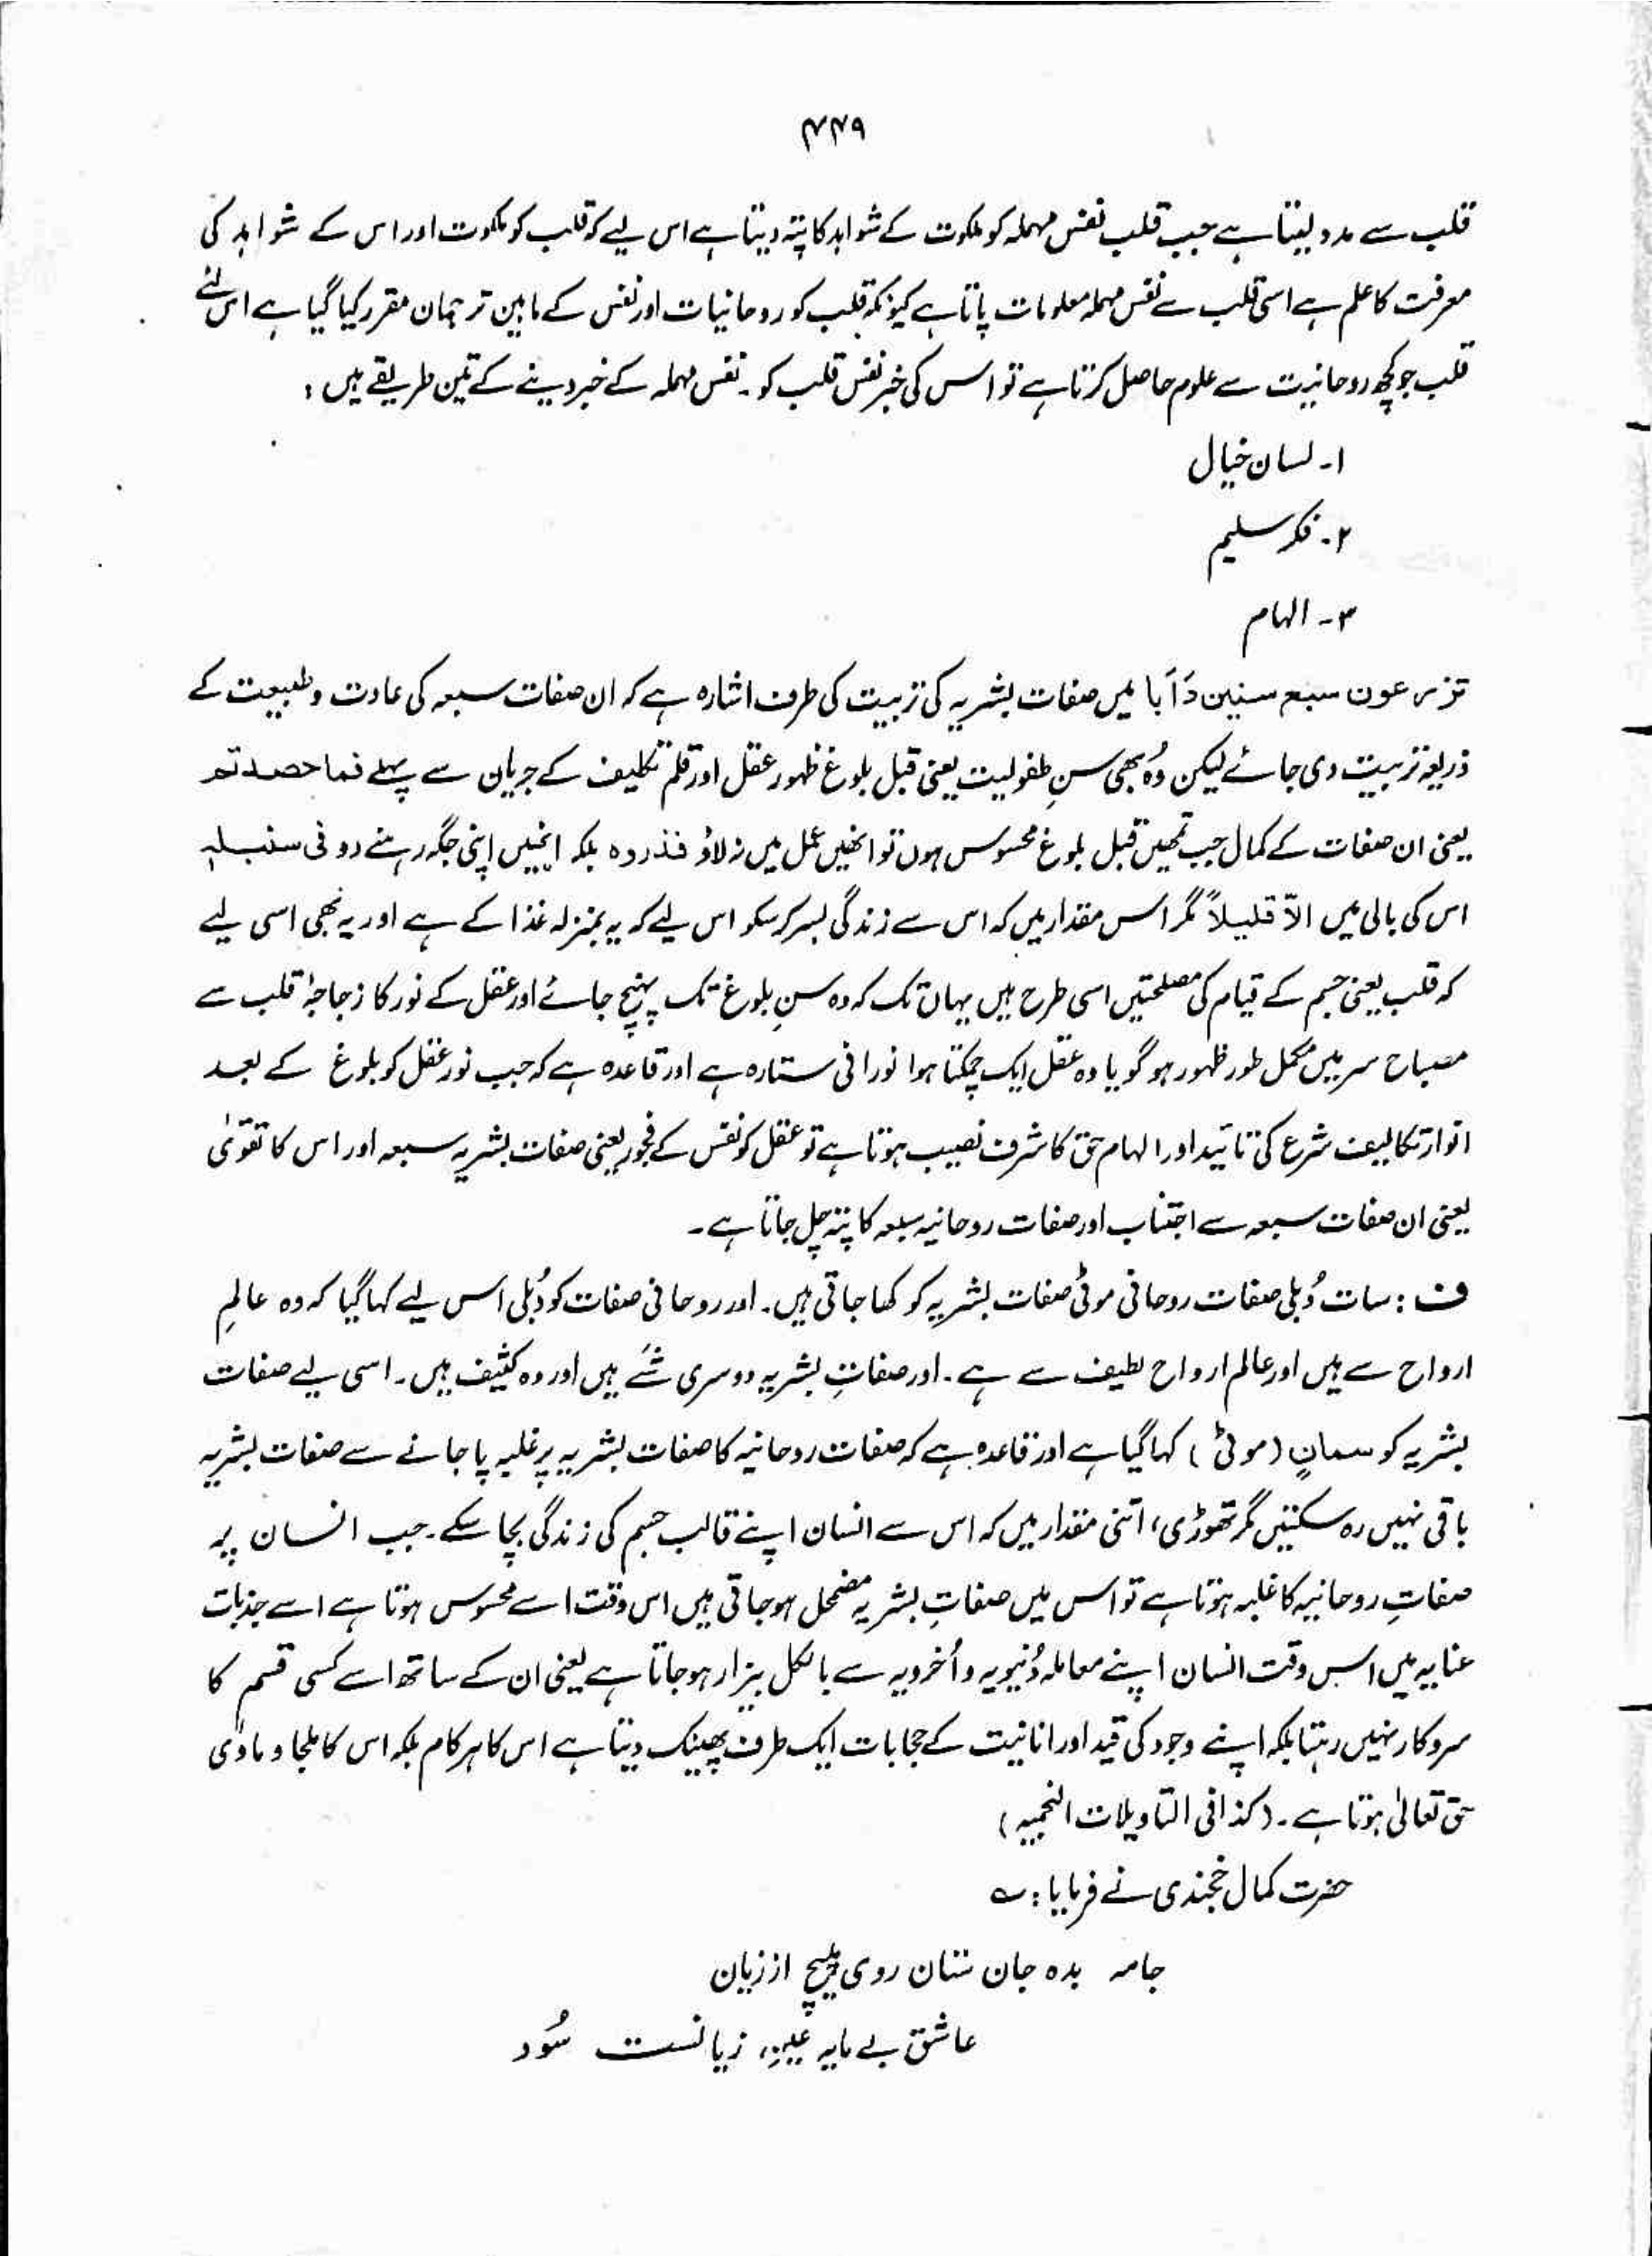 ۴۴۹
قلب سے مدد لیتا ہے جب قلب نفس مہملہ کو ملکوت کے شواہد کا پتہ دیتا ہے اس لیے کہ قلب کو ملکوت اور اس کے شواہد کی
معرفت کا علم ہے اسی قلب سے نفس مہملہ معلومات پاتا ہے کیونکہ قلب کو روحانیات اور نفس کے مابین ترجمان مقرر کیا گیا ہے اس لئے
قلب جو کچھ روحانیت سے علوم حاصل کرتا ہے تو اس کی خبر نفس قلب کو۔ نفس مہملہ کے خبر دینے کے تین طریقے ہیں :
۱۔ لسان خیال
۲۔ فکر سلیم
۳۔ الہام
تزرعون سبع سنین دَاَبا میں صفات بشریہ کی تربیت کی طرف اشارہ ہے کہ ان صفات سبعہ کی عادت و طبیعت کے
ذریعہ تربیت دی جائے لیکن وُہ بھی سنِ طفولیت یعنی قبل بلوغ ظہور عقل اور قلم تکلیف کے جریان سے پہلے فما حصدتم
یعنی ان صفات کے کمال جب تمھیں قبل بلوغ محسوس ہوں تو انھیں عمل میں نہ لاؤ فذروہ بلکہ انھیں اپنی جگہ رہنے دو فی سنبلہ
اس کی بالی میں الّا قلیلاً مگر اس مقدار میں کہ اس سے زندگی بسر کر سکو اس لیے کہ یہ بمنزلہ غذا کے ہے اور یہ بھی اسی لیے
کہ قلب یعنی جسم کے قیام کی مصلحتیں اسی طرح ہیں یہاں تک کہ وہ سنِ بلوغ تک پہنچ جائے اور عقل کے نور کا زجاجۂ قلب سے
مصباح سر میں مکمل طور ظہور ہو گویا وہ عقل ایک چمکتا ہوا نورانی ستارہ ہے اور قاعدہ ہے کہ جب نور عقل کو بلوغ کے بعد
انوار تکالیف شرع کی تائید اور الہام حق کا شرف نصیب ہوتا ہے تو عقل کو نفس کے فجور یعنی صفات بشریہ سبعہ اور اس کا تقویٰ
یعنی ان صفات سبعہ سے اجتناب اور صفات روحانیہ سبعہ کا پتہ چل جاتا ہے۔
ف : سات دُبلی صفات روحانی موٹی صفات بشریہ کو کھا جاتی ہیں۔ اور روحانی صفات کو دُبلی اس لیے کہا گیا کہ وہ عالمِ
ارواح سے ہیں اور عالم ارواح لطیف سے ہے۔ اور صفاتِ بشریہ دوسری شَے ہیں اور وہ کثیف ہیں۔ اسی لیے صفات
بشریہ کو سمانٍ (موٹی) کہا گیا ہے اور قاعدہ ہے کہ صفات روحانیہ کا صفات بشریہ پر غلبہ پا جانے سے صفات بشریہ
باقی نہیں رہ سکتیں مگر تھوڑی، اتنی مقدار میں کہ اس سے انسان اپنے قالب جسم کی زندگی بچا سکے۔ جب انسان پر
صفاتِ روحانیہ کا غلبہ ہوتا ہے تو اس میں صفاتِ بشریہ مضمحل ہو جاتی ہیں اس وقت اسے محسوس ہوتا ہے اسے جذبات
عنایہ میں اس وقت انسان اپنے معاملہ دُنیویہ و اُخرویہ سے بالکل بیزار ہو جاتا ہے یعنی ان کے ساتھ اسے کسی قسم کا
سروکار نہیں رہتا بلکہ اپنے وجود کی قید اور انانیت کے حجابات ایک طرف پھینک دیتا ہے اس کا ہر کام بلکہ اس کا ملجا و ماوٰی
حق تعالیٰ ہوتا ہے۔ (کذا فی التاویلات النجمیہ)
حضرت کمال خجندی نے فرمایا : ؎
جامہ بدہ جان ستان روی مپیچ از زیان
عاشق بے مایہ زیانست سُود